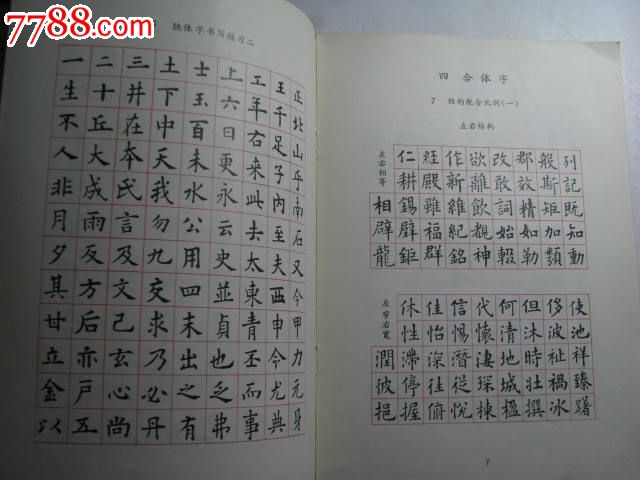 7788.com
独体字书写练习二
一二三土士上工王正
生十井下玉六年千北
不丘在中百曰右足山
人大本天未更來子乎
非成氏我水永此內南
月雨言勿公云去至石
夕反及九用史太夫又
其方文交四並東西今
廿后己求末貞青申甲
立亦玄乃出也丕令力
金戶心必之乏而尤元
以五尚丹有弗事典身
四合体字
7 结构配合比例(一)
左右结构
左右相等
仁経作欲改郡般列
耕殿新離敢效斯記
相錫雖維飲詞精矩既
福紀觀始如加知
龍鉅群銘神輟勒類動
左窄右宽
休佳信代何但侈使
性怡惕懷清沐波池
潤滯深潛淒地時祉祥
彼停往從琛城壯禍臻
挹握俯悅棟楹撰冰
7